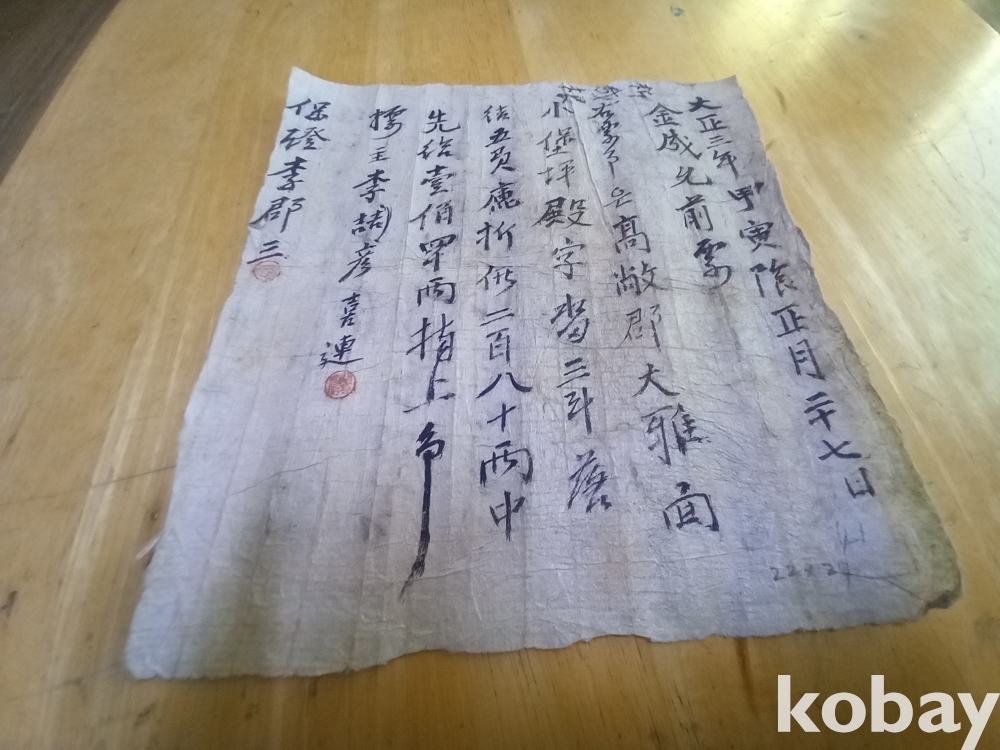 大正三年甲寅陰正月二十七日
金成先前票
右票事은高敞郡大雅面
小堡坪殿字畓三斗落
結五負庫折価二百八十兩中
先給壹佰四兩捧上事
標主李喆彦喜連
保證李郡三
22×2
kobay